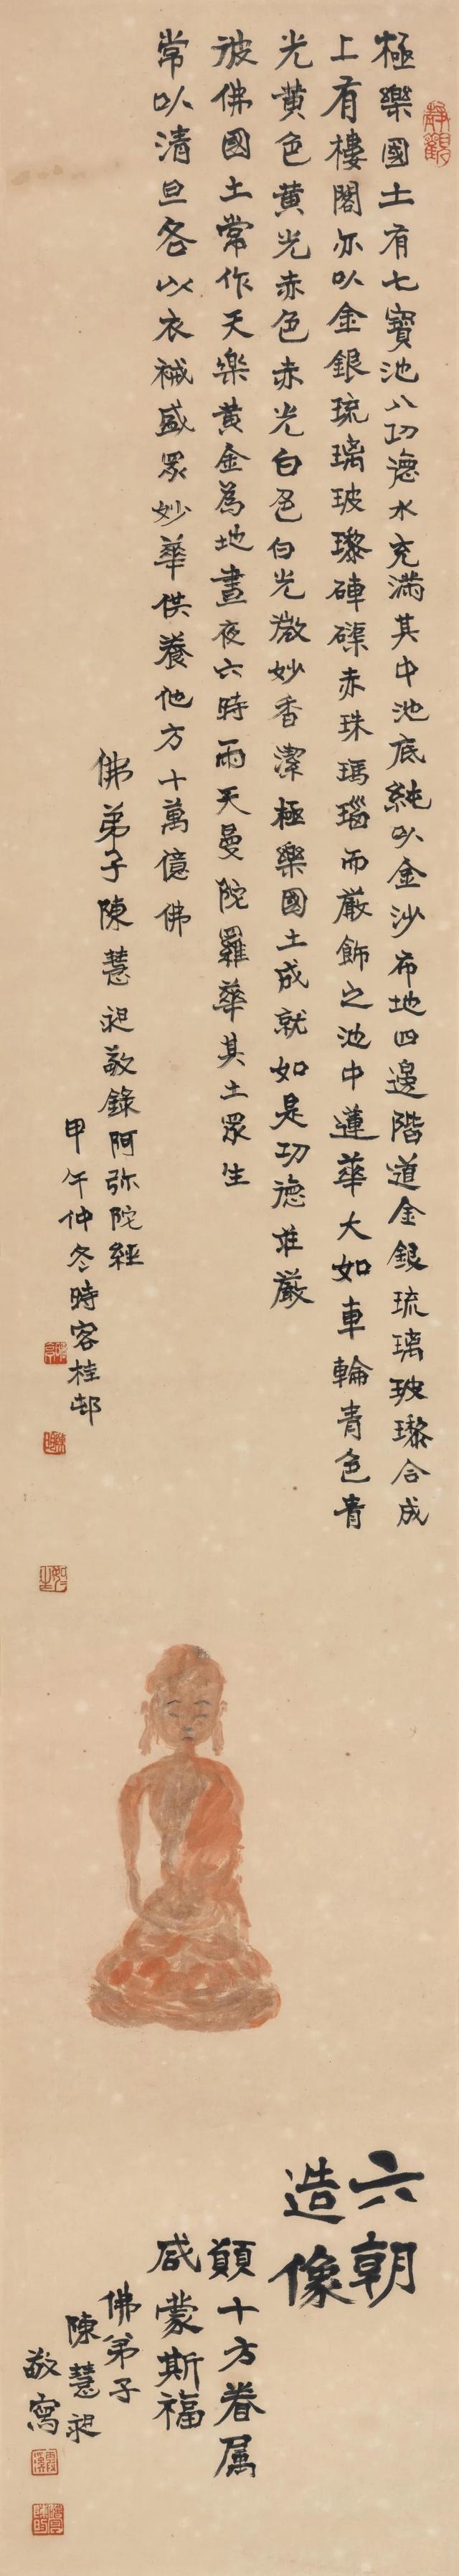 靜觀
極樂國土有七寶池八功德水充滿其中池底純以金沙布地四邊階道金銀琉璃玻瓈合成
上有樓閣亦以金銀琉璃玻瓈硨磲赤珠瑪瑙而嚴飾之池中蓮華大如車輪青色青
光黃色黃光赤色赤光白色白光微妙香潔極樂國土成就如是功德莊嚴
彼佛國土常作天樂黃金為地晝夜六時雨天曼陀羅華其土眾生
常以清旦各以衣祴盛眾妙華供養他方十萬億佛
佛弟子陳慧昶敬錄阿弥陀經
甲午仲冬時客桂邨
六朝
造像
顛十方眷属
咸蒙斯福
佛弟子
陳慧昶
敬寫